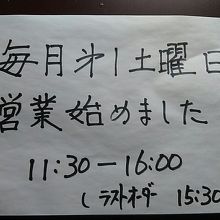 毎月第1土曜日
営業始めました
11:30-16:00
(ラストオーダー 15:30